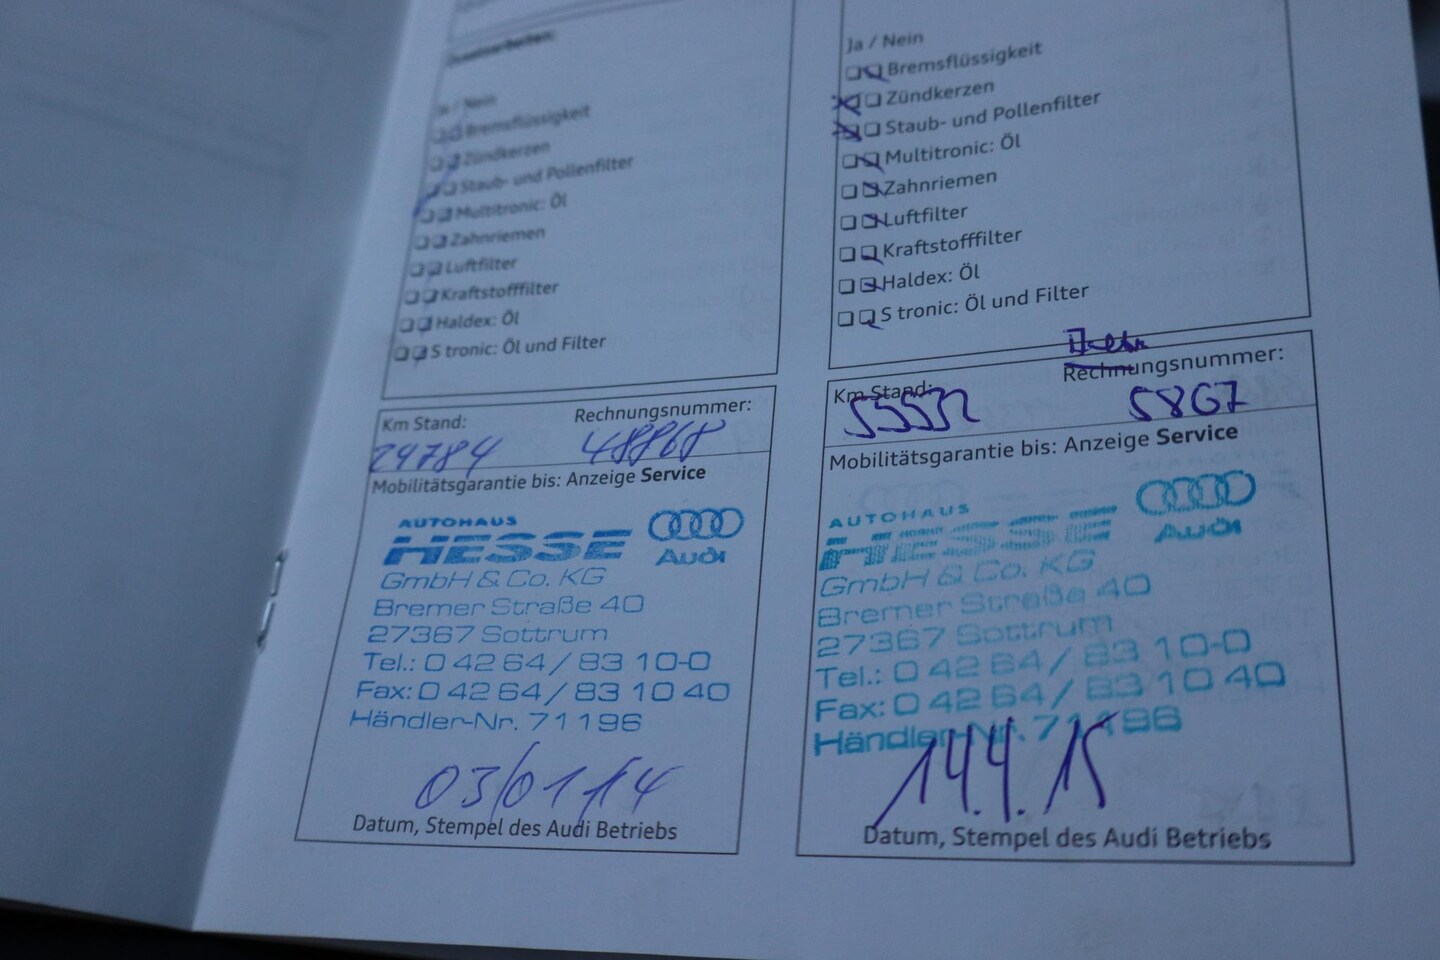 Ja / Nein
Bremsflüssigkeit
Zündkerzen
Staub- und Pollenfilter
Multitronic: Öl
Zahnriemen
Luftfilter
Kraftstofffilter
Haldex: Öl
S tronic: Öl und Filter
Km Stand: Rechnungsnummer:
29784 48868
Mobilitätsgarantie bis: Anzeige Service
AUTOHAUS
HESSE Audi
GmbH & Co. KG
Bremer Straße 40
27367 Sottrum
Tel.: 0 42 64 / 83 10-0
Fax: 0 42 64 / 83 10 40
Händler-Nr. 71196
03/01/14
Datum, Stempel des Audi Betriebs
Ja / Nein
Bremsflüssigkeit
Zündkerzen
Staub- und Pollenfilter
Multitronic: Öl
Zahnriemen
Luftfilter
Kraftstofffilter
Haldex: Öl
S tronic: Öl und Filter
Km Stand: Rechnungsnummer:
55532 5867
Mobilitätsgarantie bis: Anzeige Service
AUTOHAUS
HESSE Audi
GmbH & Co. KG
Bremer Straße 40
27367 Sottrum
Tel.: 0 42 64 / 83 10-0
Fax: 0 42 64 / 83 10 40
Händler-Nr. 71196
14.4.15
Datum, Stempel des Audi Betriebs